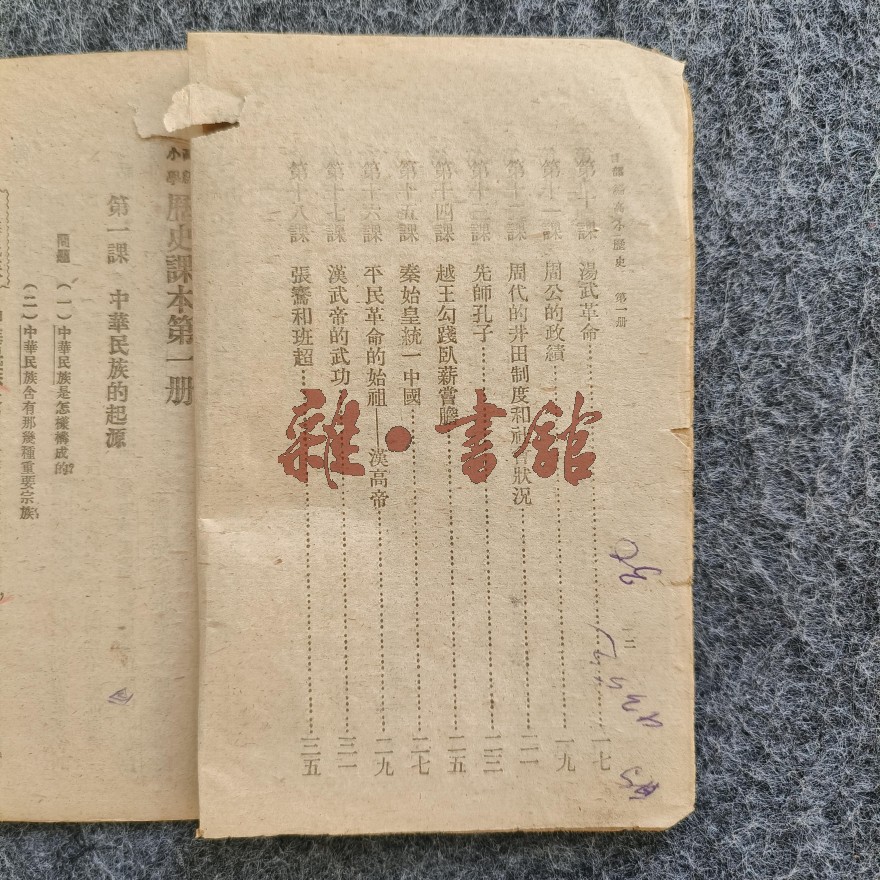 高小歷史 第一册
第十課 湯武革命 一七
第十一課 周公的政績 一九
第十二課 周代的井田制度和社會狀況 二一
第十三課 先師孔子 二三
第十四課 越王勾踐臥薪嘗膽 二五
第十五課 秦始皇統一中國 二七
第十六課 平民革命的始祖——漢高帝 二九
第十七課 漢武帝的武功 三一
第十八課 張騫和班超 三五
二
雜·書館
小學 歷史課本第一册
第一課 中華民族的起源
問題 (一)中華民族是怎樣構成的?
(二)中華民族含有那幾種重要宗族?